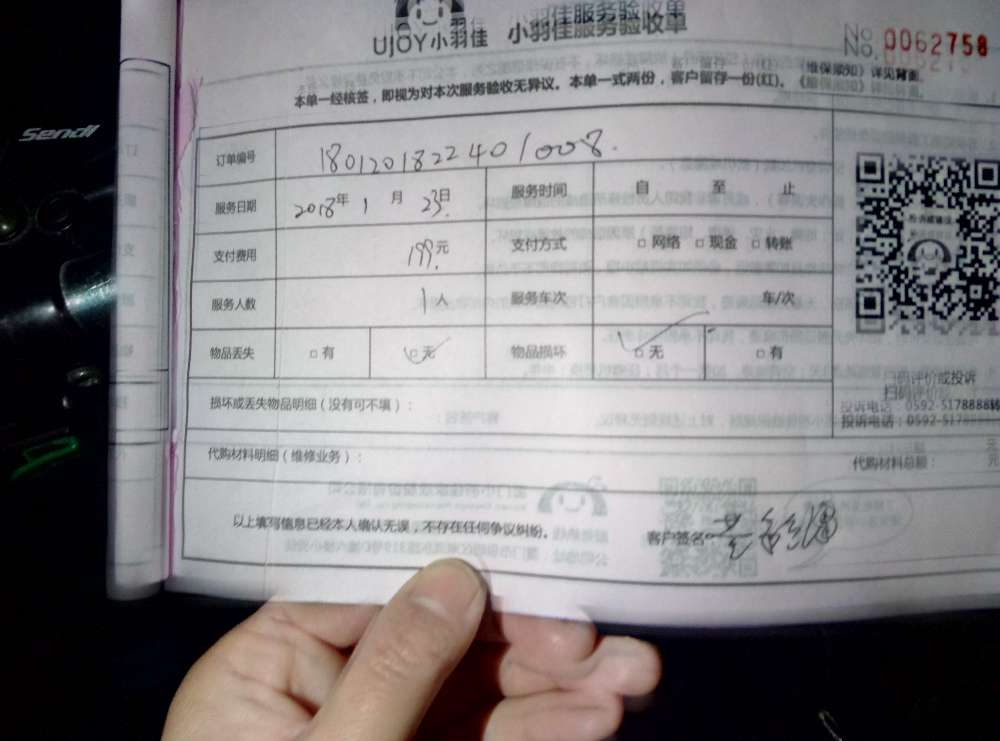 UJOY小羽佳 小羽佳服务验收单
No. 0062758
本单一经核签，即视为对本次服务验收无异议。本单一式两份，客户留存一份(红)。《维保须知》详见背面。
Sendl
订单编号 180120182240/008.
服务日期 2018年 1 月 23日 服务时间 自 至 止
支付费用 199.元 支付方式 □网络 □现金 □转账
服务人数 1人 服务车次 车/次
物品丢失 □有 □无 物品损坏 □无 □有
扫码评价或投诉
损坏或丢失物品明细（没有可不填）：
投诉电话：0592-5178888转
代购材料明细（维修业务）： 代购材料总额： 元
以上填写信息已经本人确认无误，不存在任何争议纠纷。 客户签名：